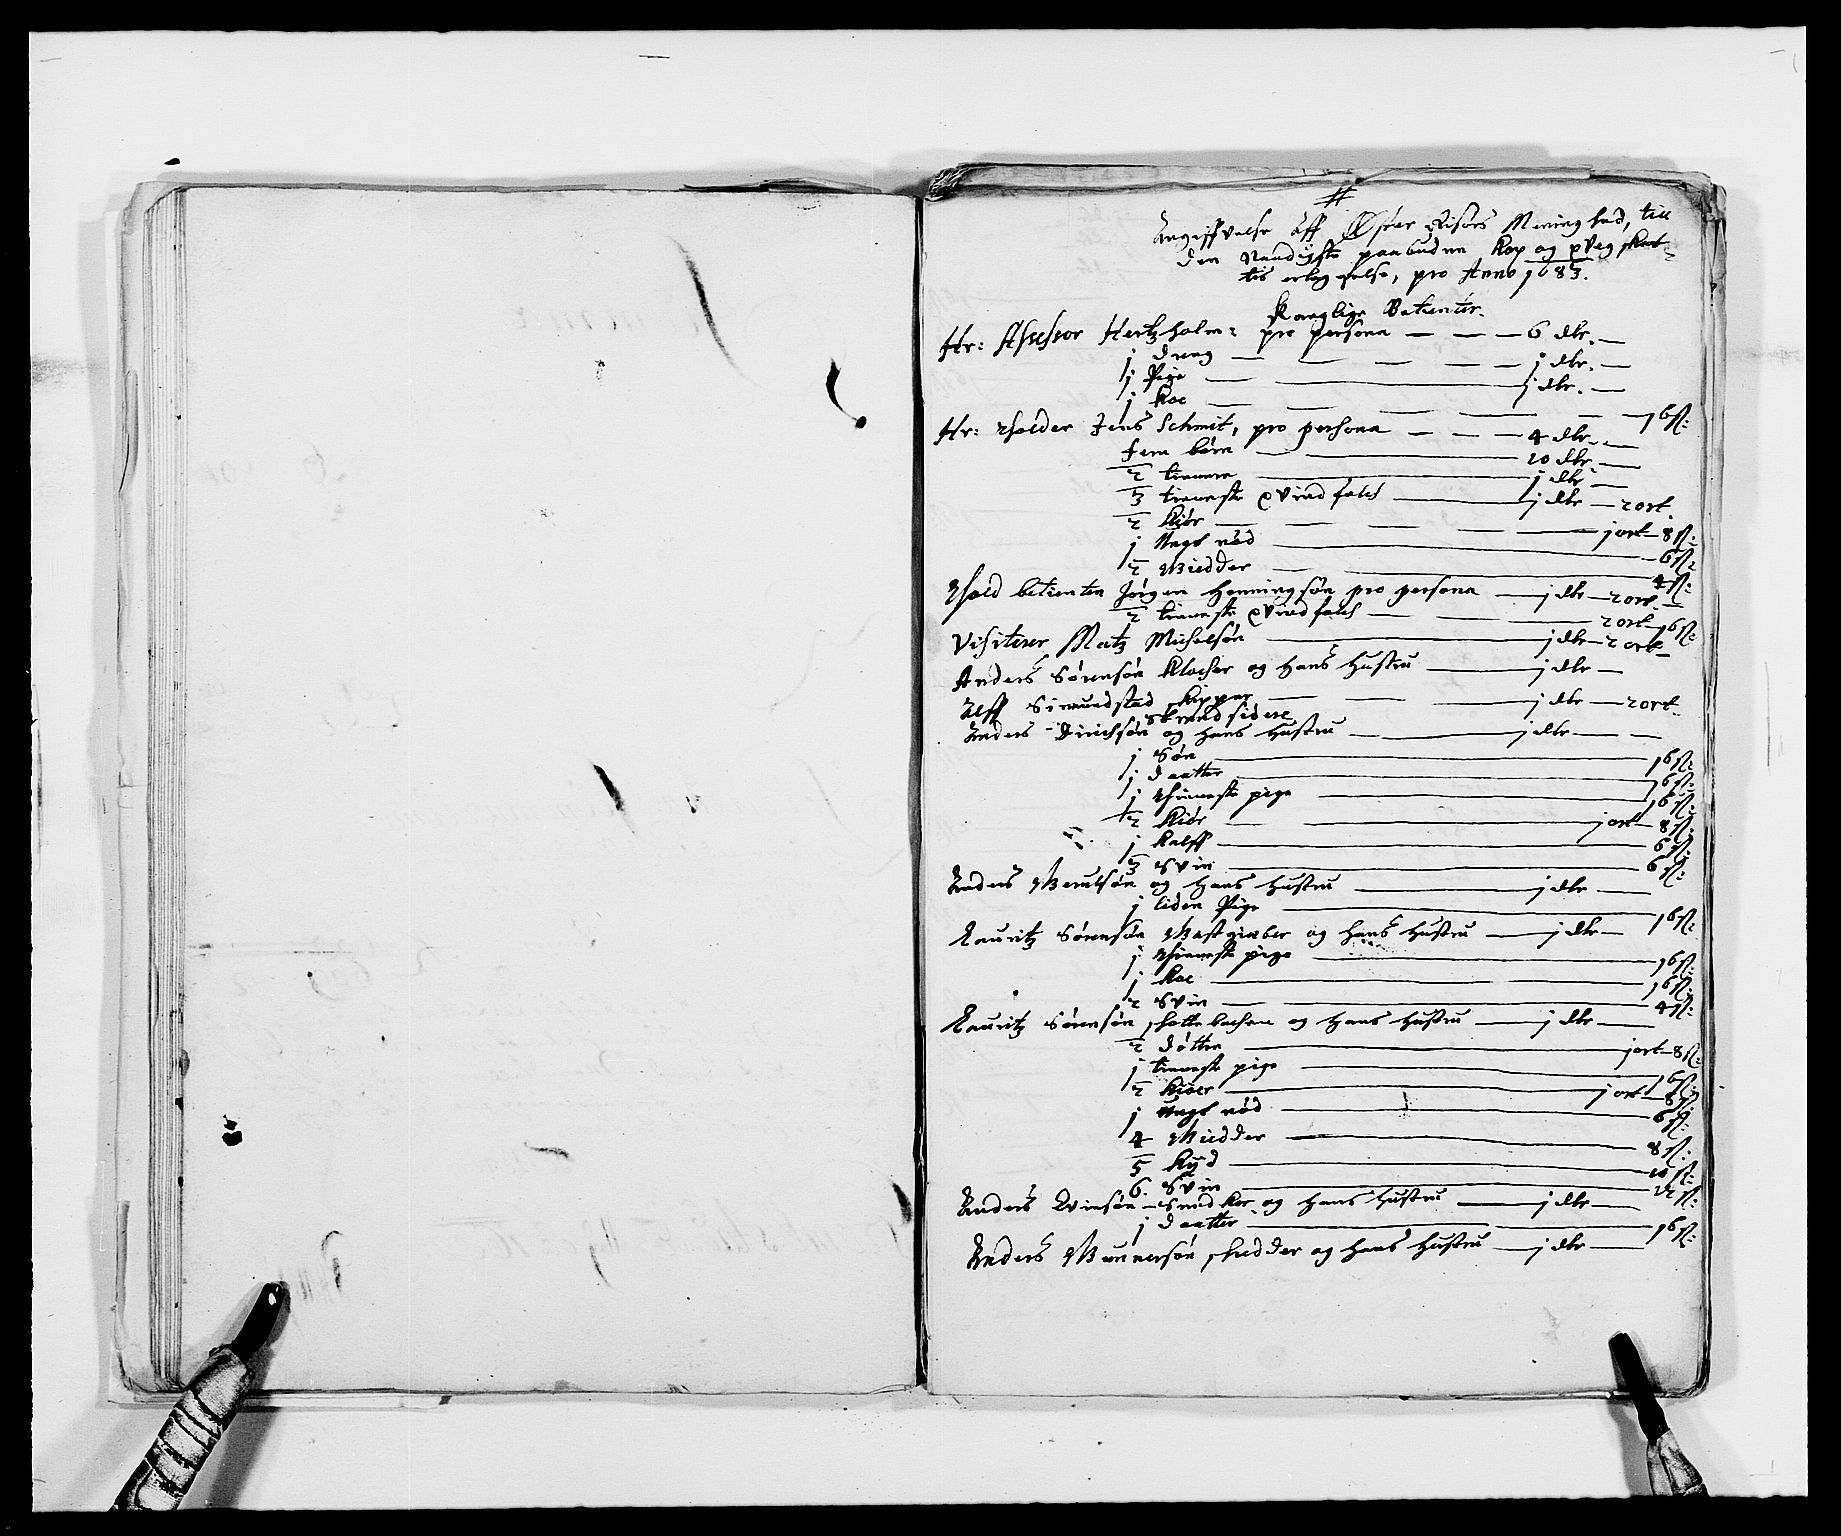 Angiffvelse aff Øster Riisørs Menighed, till
den Naadigste paabudne Kop og qveg skat
tis erleggelse, pro Anno 1683.
Konglige Betienter.
Hr: Assessor Hertzholm: pro persona — — — 6 dlr. —
j dreng — — — — — j dlr. —
j Pige — — j dlr. —
j Koe — — — — — 16 s:
Hr: Tholder Jens Schmit, pro persona — — — 4 dlr. —
fem børn — 20 dlr. —
2 tienere — j dlr —
3 tieneste qvindfolch — j dlr — 2 ort.
2 Kiør — — — — j ort — 8 s:
j Ungt nød — 6 s:
2 Bieder — — 4 s:
Thold betienten Jørgen Henningsøn pro persona — j dlr — 2 ort. —
2 tieneste qvindfolch — — 2 ort 16 s:
Visiterer Matz Michelsøn — j dlr — 2 ort —
Anders Sørensøn Klocher og hans hustru — j dlr —
Ulff Simundstad skipper — — j dlr — 2 ort
Strandsidere
Anders Dirichsøn og hans hustru — — j dlr — —
j Søn — 16 s:
j daatter — 16 s:
j thieneste pige — 16 s:
2 Kiør — j ort — 8 s:
j Kalff — 6 s:
3 Svin — 6 s:
Anders Berulsøn og hans hustru — j dlr —
j liden Pige — 16 s:
Lauritz Sørensøn og hans hustru — j dlr —
j thieneste pige — 16 s:
j Koe — — 16 s:
2 Svin — — 4 s:
Lauritz Sørensøn og hans hustru — j dlr —
2 døttre — j ort — 8 s:
j tieneste pige — 16 s:
2 Kiøer — j ort — 8 s:
j Ungt nød — 6 s:
4 Bieder — 8 s:
5 Kiid — 10 s:
6 Svin — 12 s:
Anders Evinsøn Snedker og hans hustru — j dlr —
j daatter — 16 s:
Anders Gunnersøn skredder og hans hustru — j dlr —